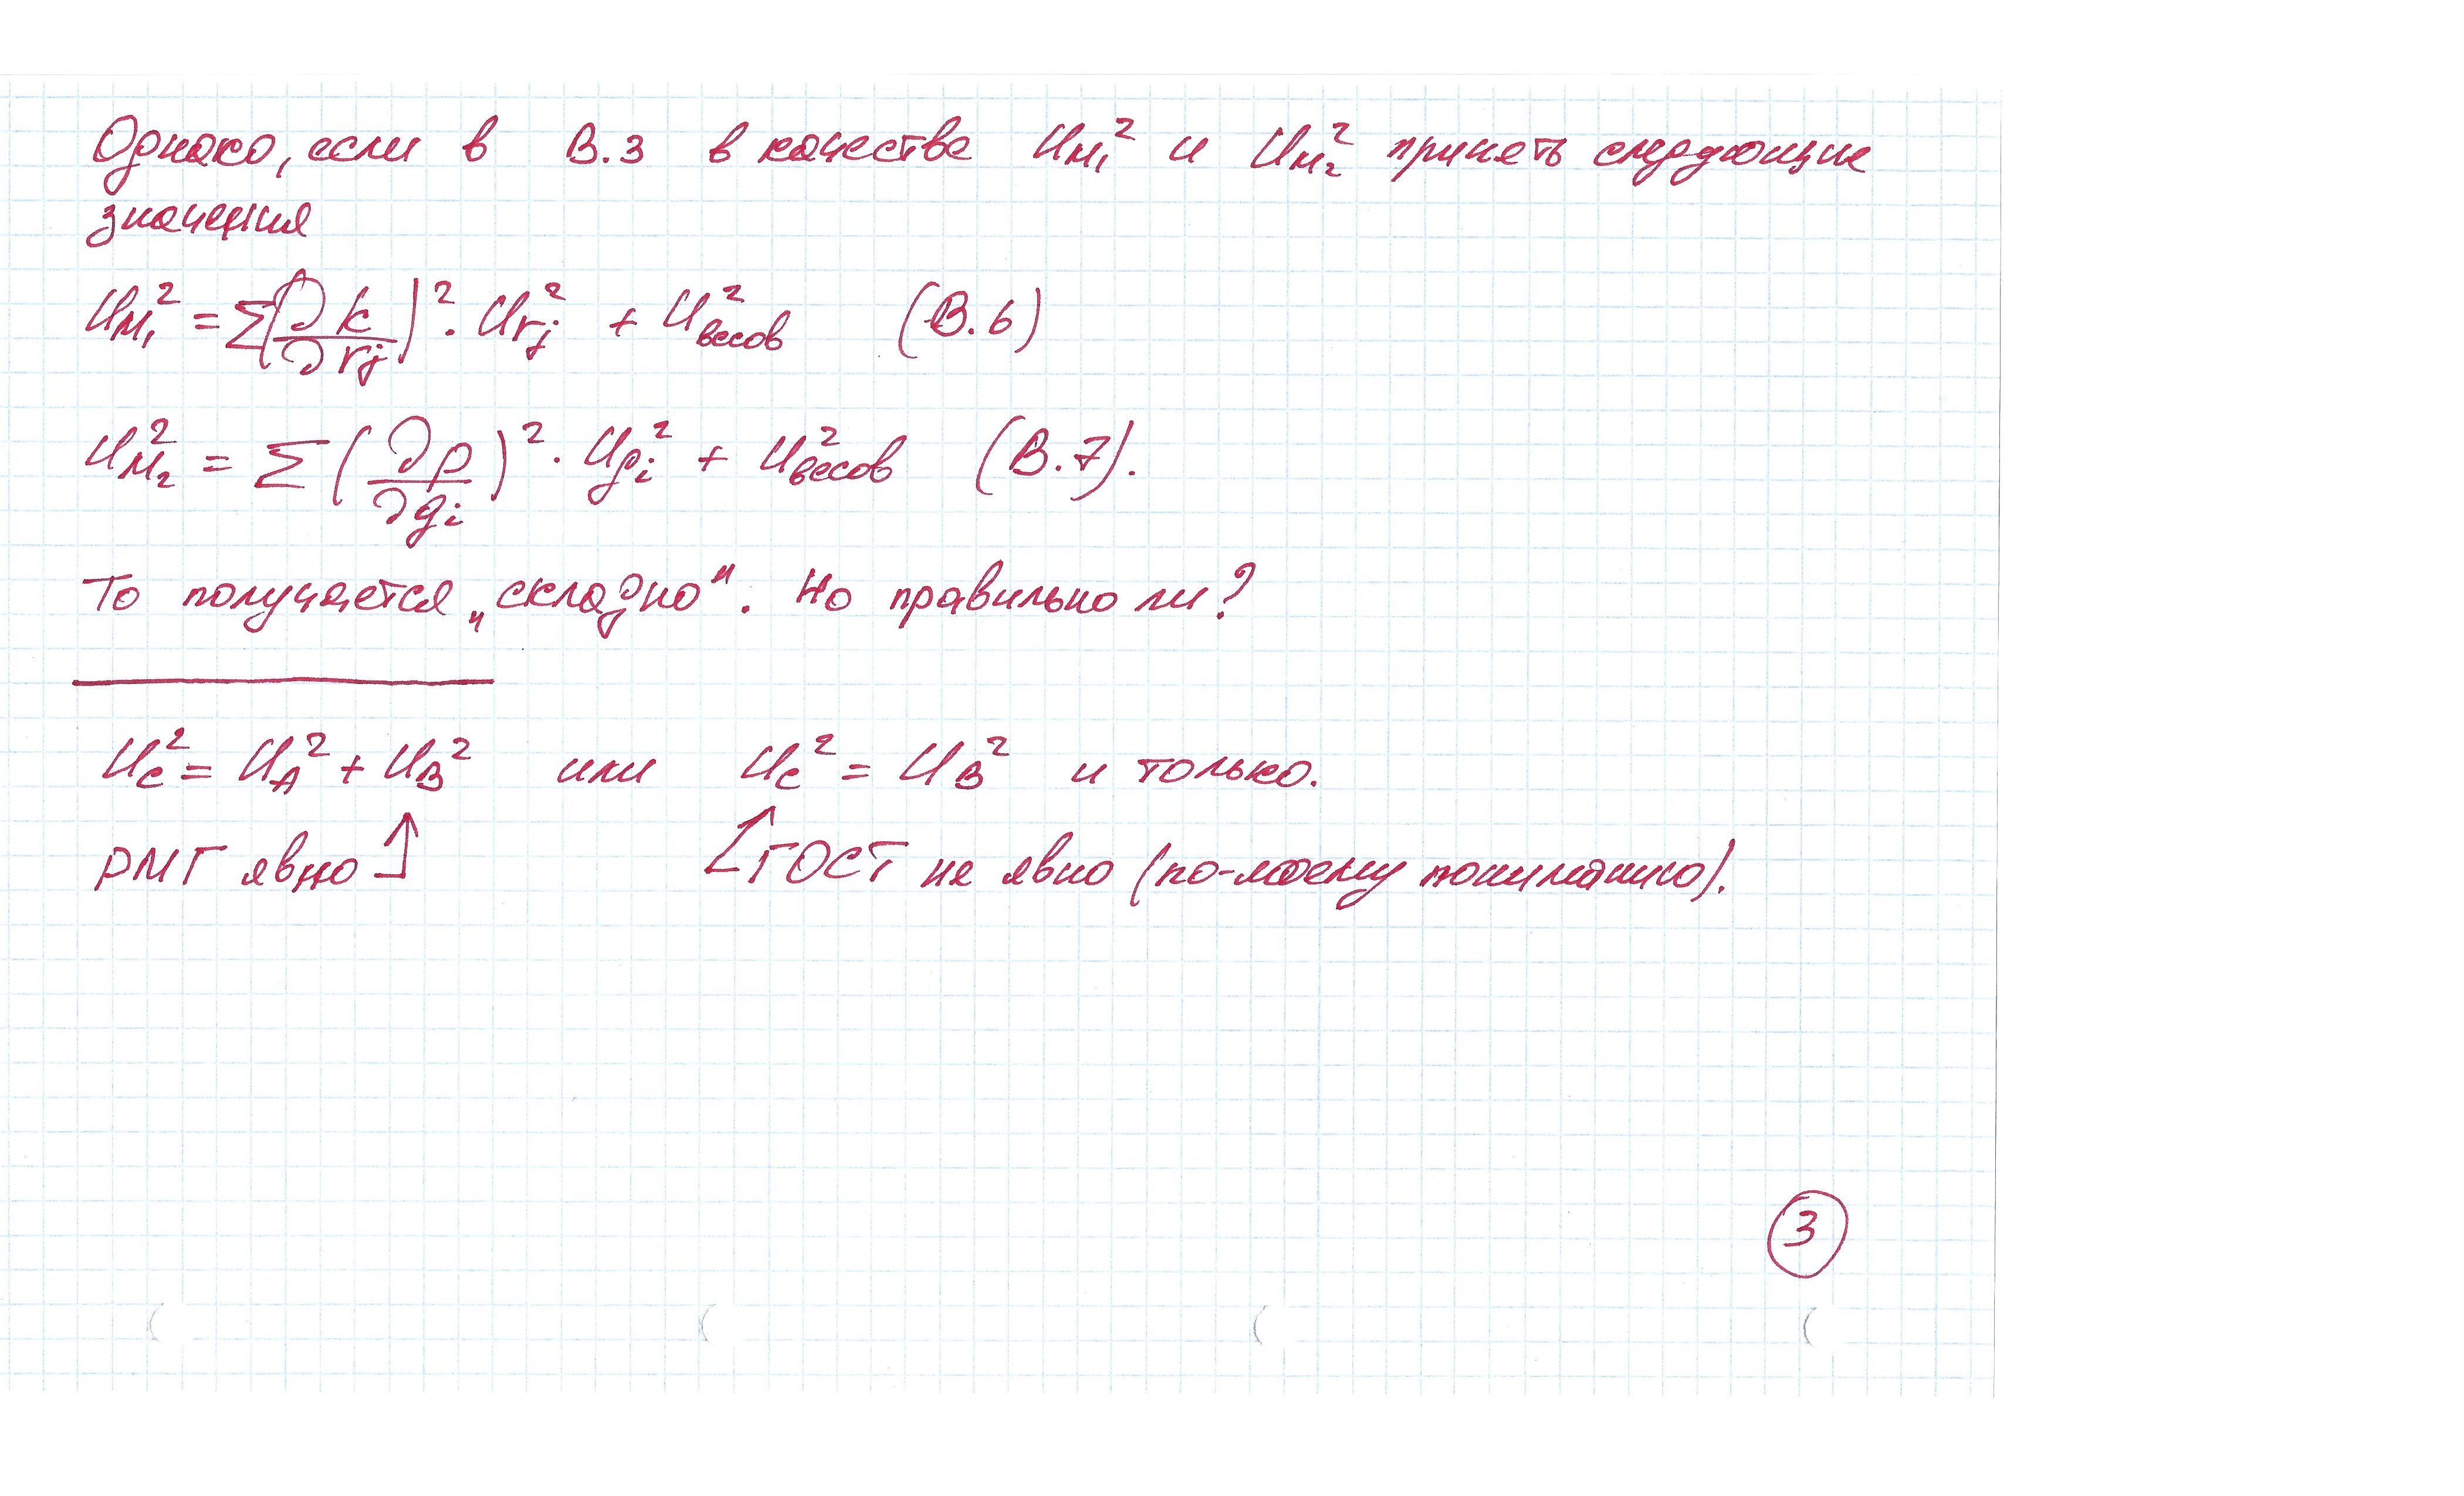 Однако, если в В.3 в качестве U²м₁ и U²м₂ принять следующие
значения
U²м₁ = Σ(∂k/∂rj)² · U²rj + U²весов (В.6)
U²м₂ = Σ(∂p/∂gi)² · U²gi + U²весов (В.7).
То получается „складно". Но правильно ли?
Uc² = UA² + UB² или Uc² = UB² и только.
РМГ явно ↑ ↑ ГОСТ не явно (по-моему пониманию).
3